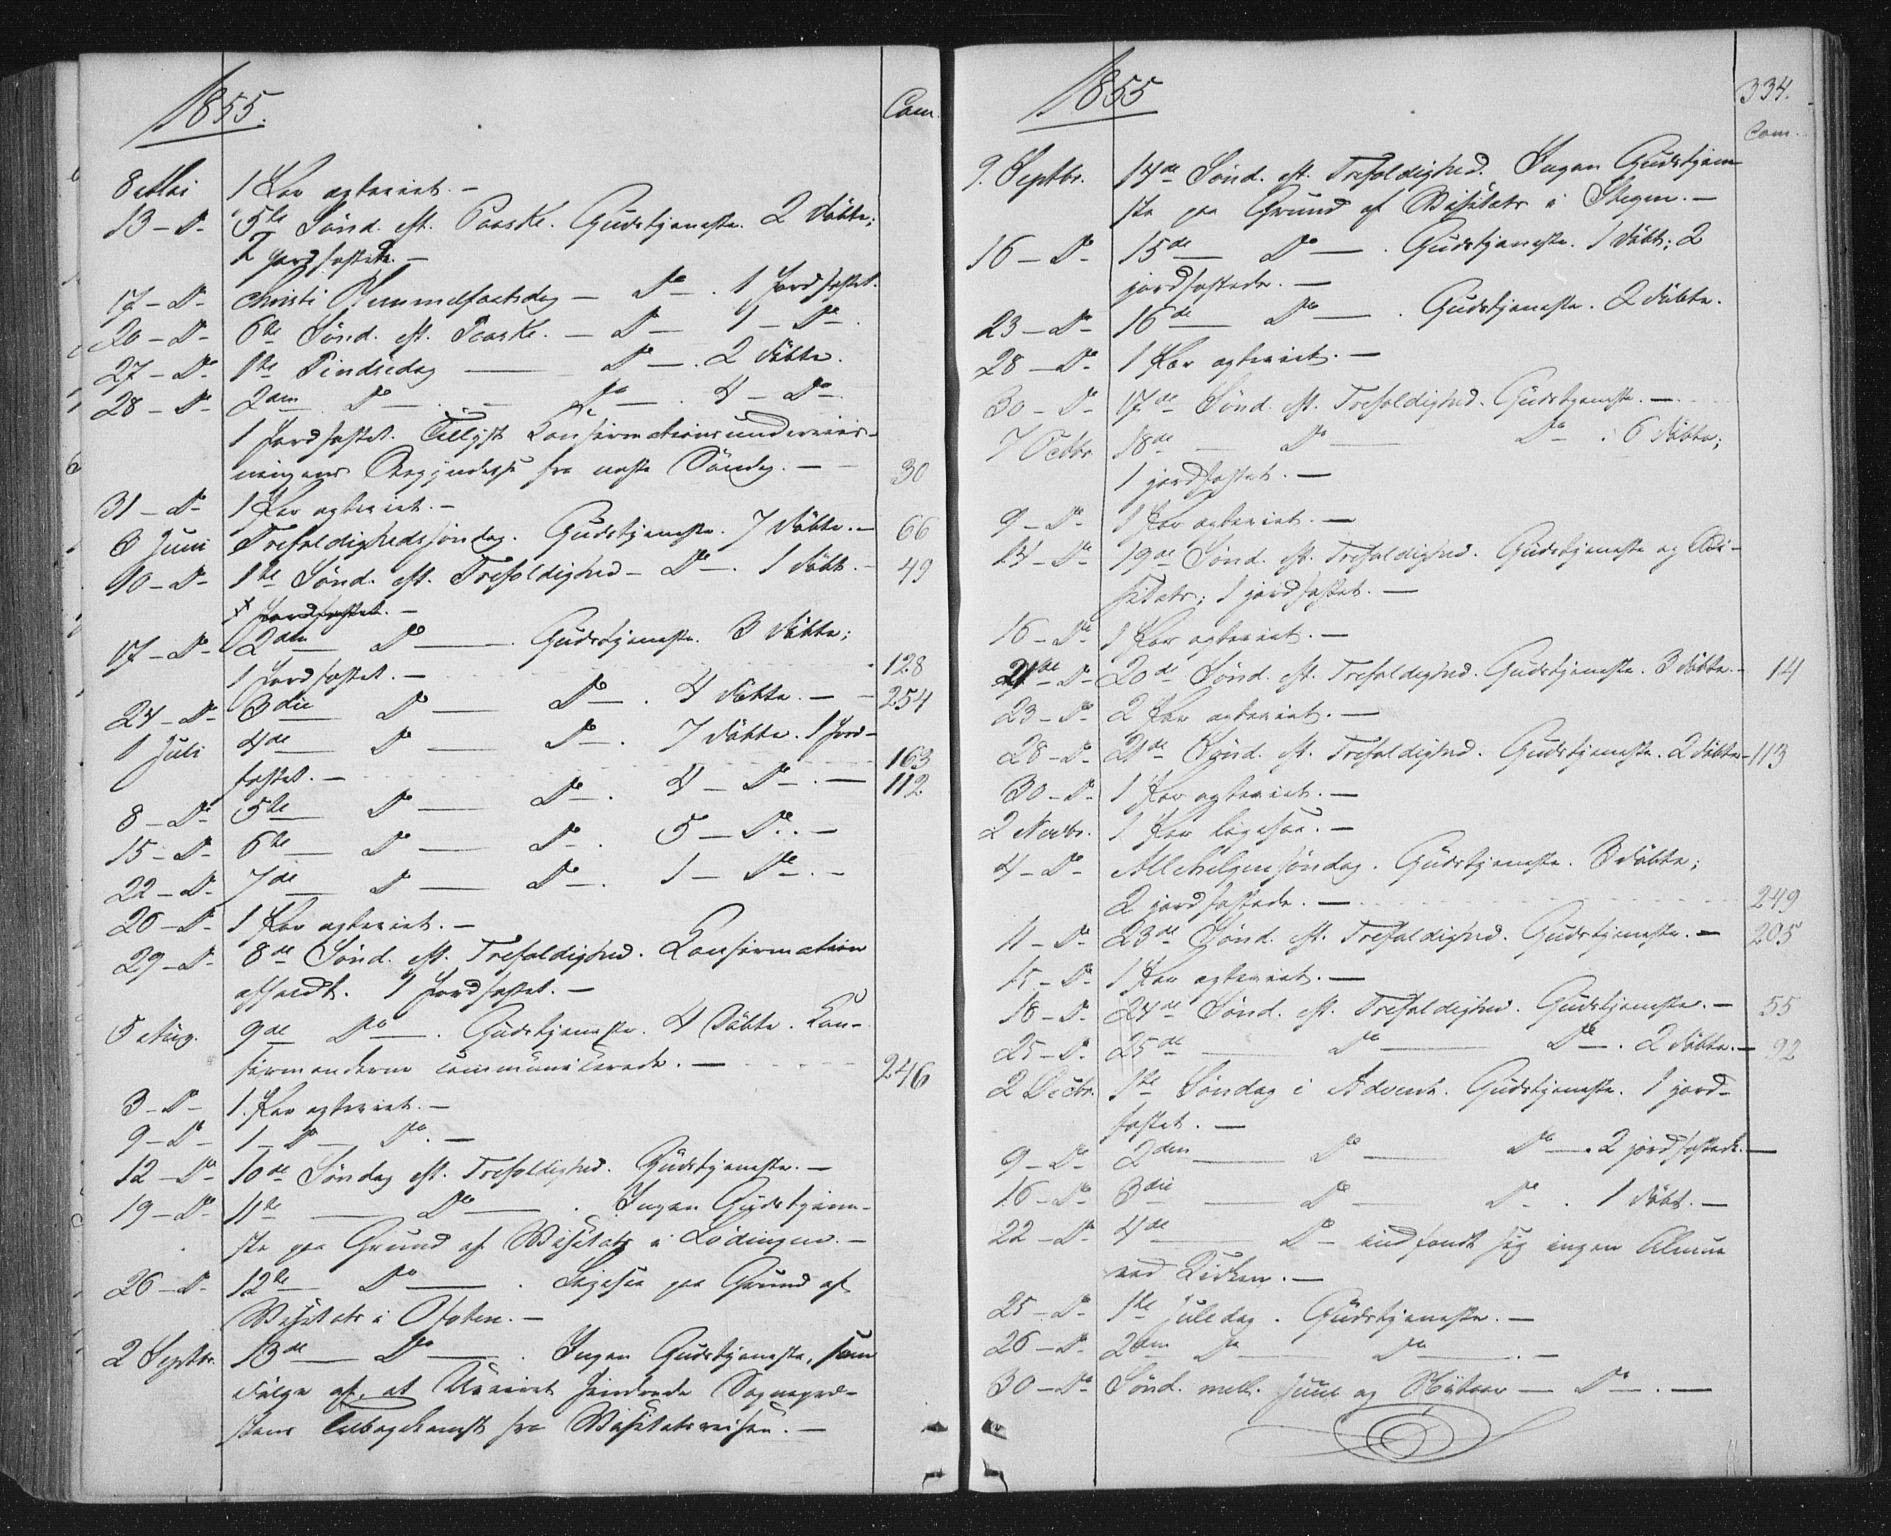 1855.
Com.
8 Mai 1 Par ægteviet. —
13 – Do – 5te Sønd. eft. Paaske. Gudstjeneste. 2 døbte;
2 jordfæstede. —
17 – Do – Christi Himmelfartsdag — Do — . 1 Jordfæstet.
20 – Do – 6te Sønd. eft. Paaske. — Do — 1 — Do — .
27 – Do – 1ste Pindsedag — Do — . 2 døbte.
28 – Do – 2den Do — . — Do — . 4 — Do —
1 Jordfæstet. Tillyst Konfirmationsunderviis-
ningens Begyndelse fra næste Søndag. — — 30
31 – Do – 1 Par ægteviet. —
3 Juni Trefoldighedssøndag. Gudstjeneste. 7 døbte. — 66
10 – Do – 1ste Sønd. eft. Trefoldighed — Do — . 1 døbt. — 49
1 Jordfæstet. —
17 – Do – 2den Do — . Gudstjeneste. 3 døbte;
1 Jordfæstet. — 128
24 – Do – 3die Do — Do — . 4 døbte. — — 254
1 Juli 4de Do — Do — . 7 døbte. 1 Jord-
fæstet. — 163
8 – Do – 5te Do — Do — . 4 — Do — . — 112
15 – Do – 6te — Do — Do — . 5 — Do . . —
22 – Do – 7de — Do — Do — . 1 — Do — . —
26 – Do – 1 Par ægteviet. —
29 – Do – 8de Sønd. eft. Trefoldighed. Konfirmation
afholdt. 1 Jordfæstet. —
5 Aug. 9de Do — . Gudstjeneste. 4 døbte. Kon-
firmanderne communicerede. — 246
3 – Do – 1 Par ægteviet. —
9 – Do – 1 — Do — Do. —
12 – Do – 10de Søndag eft. Trefoldighed. Gudstjeneste. —
19 – Do – 11te — Do — . Ingen Gudstjene-
ste paa Grund af Visitats i Lødingen. —
26 – Do – 12te — Do — . Ligesaa paa Grund af
Visitats i Ofoten. —
2 Septbr. 13de — Do — . Ingen Gudstjeneste, som
Følge af, at Uveiret hindrede Sognepræ-
stens Tilbagekomst fra Visitatsreisen. —
1855
334.
Com.
9. Septbr. 14de Sønd. eft. Trefoldighed. Ingen Gudstjene-
ste paa Grund af Visitats i Stegen. —
16 – Do – 15de — Do — . Gudstjeneste. 1 døbt; 2
jordfæstede. —
23 – Do – 16de — Do — . Gudstjeneste. 2 døbte.
28 – Do – 1 Par ægteviet. —
30 – Do – 17de Sønd. eft. Trefoldighed. Gudstjeneste. —
7 Octbr. 18de — Do — Do — . 6 døbte;
1 jordfæstet. —
9 – Do – 1 Par ægteviet. —
14 – Do – 19de Sønd. eft. Trefoldighed. Gudstjeneste og Vi-
sitats; 1 jordfæstet. —
16 – Do – 1 Par ægteviet. —
21de – Do – 20de Sønd. eft. Trefoldighed. Gudstjeneste. 3 døbte. – 14
23 – Do – 2 Par ægteviet. —
28 – Do – 21de Sønd. eft. Trefoldighed. Gudstjeneste. 2 døbte – 113
30 – Do – 1 Par ægteviet. —
2 Novbr. 1 Par ligesaa. —
4 – Do – Allehelgensøndag. Gudstjeneste. 3 døbte;
2 jordfæstede. — 249
11 – Do – 23de Sønd. eft. Trefoldighed. Gudstjeneste. — 205
15 – Do – 1 Par ægteviet. —
18 – Do – 24de Sønd. eft. Trefoldighed. Gudstjeneste. — 55
25 – Do – 25de — Do — Do — . 2 døbte. — 92
2 Decbr. 1ste Søndag i Advent. Gudstjeneste. 1 jord-
fæstet. —
9 – Do – 2den — Do — Do — . 2 jordfæstede. —
16 – Do – 3die — Do — Do — . 1 døbt. —
22 – Do – 4de — Do — indfandt sig ingen Almue
ved Kirken. —
25 – Do – 1ste Juledag. Gudstjeneste. —
26 – Do – 2den Do — Do — . —
30 – Do – Sønd. mell. Juul og Nytaar — Do — . —